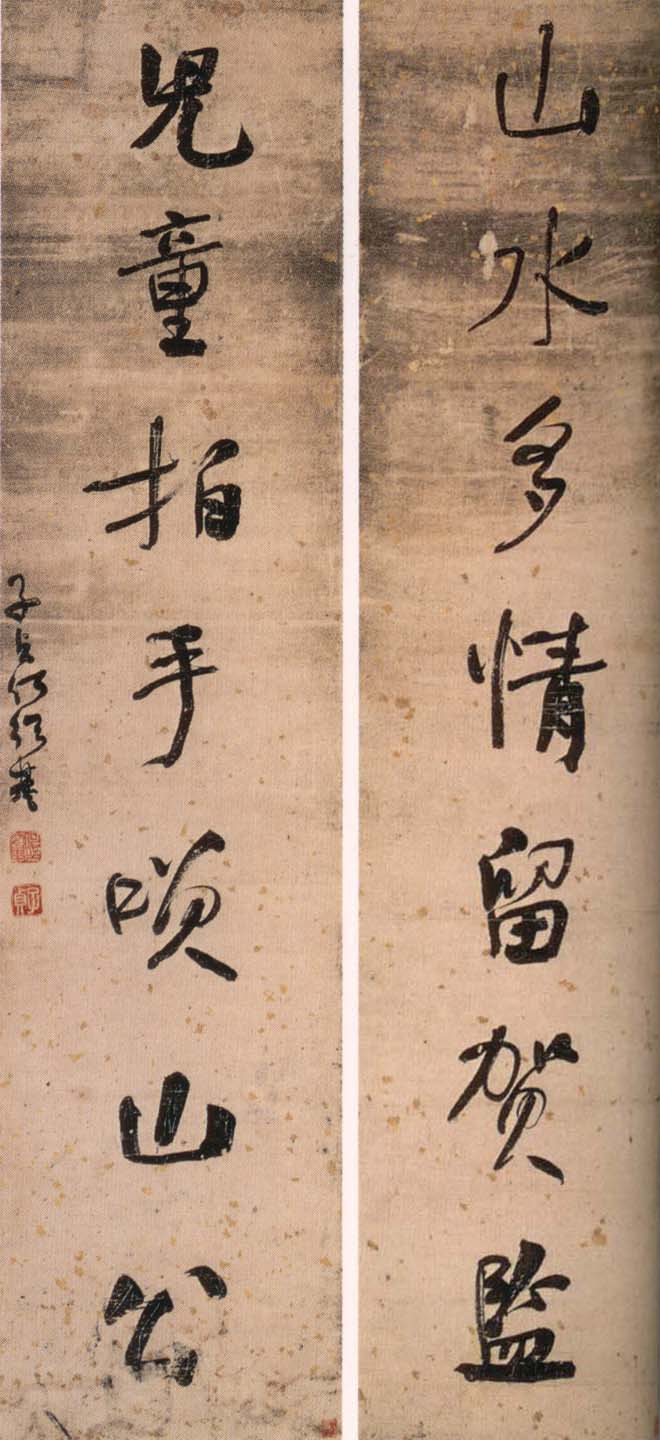 山水多情留賀監
兒童拍手喚山公
子貞何紹基
子貞